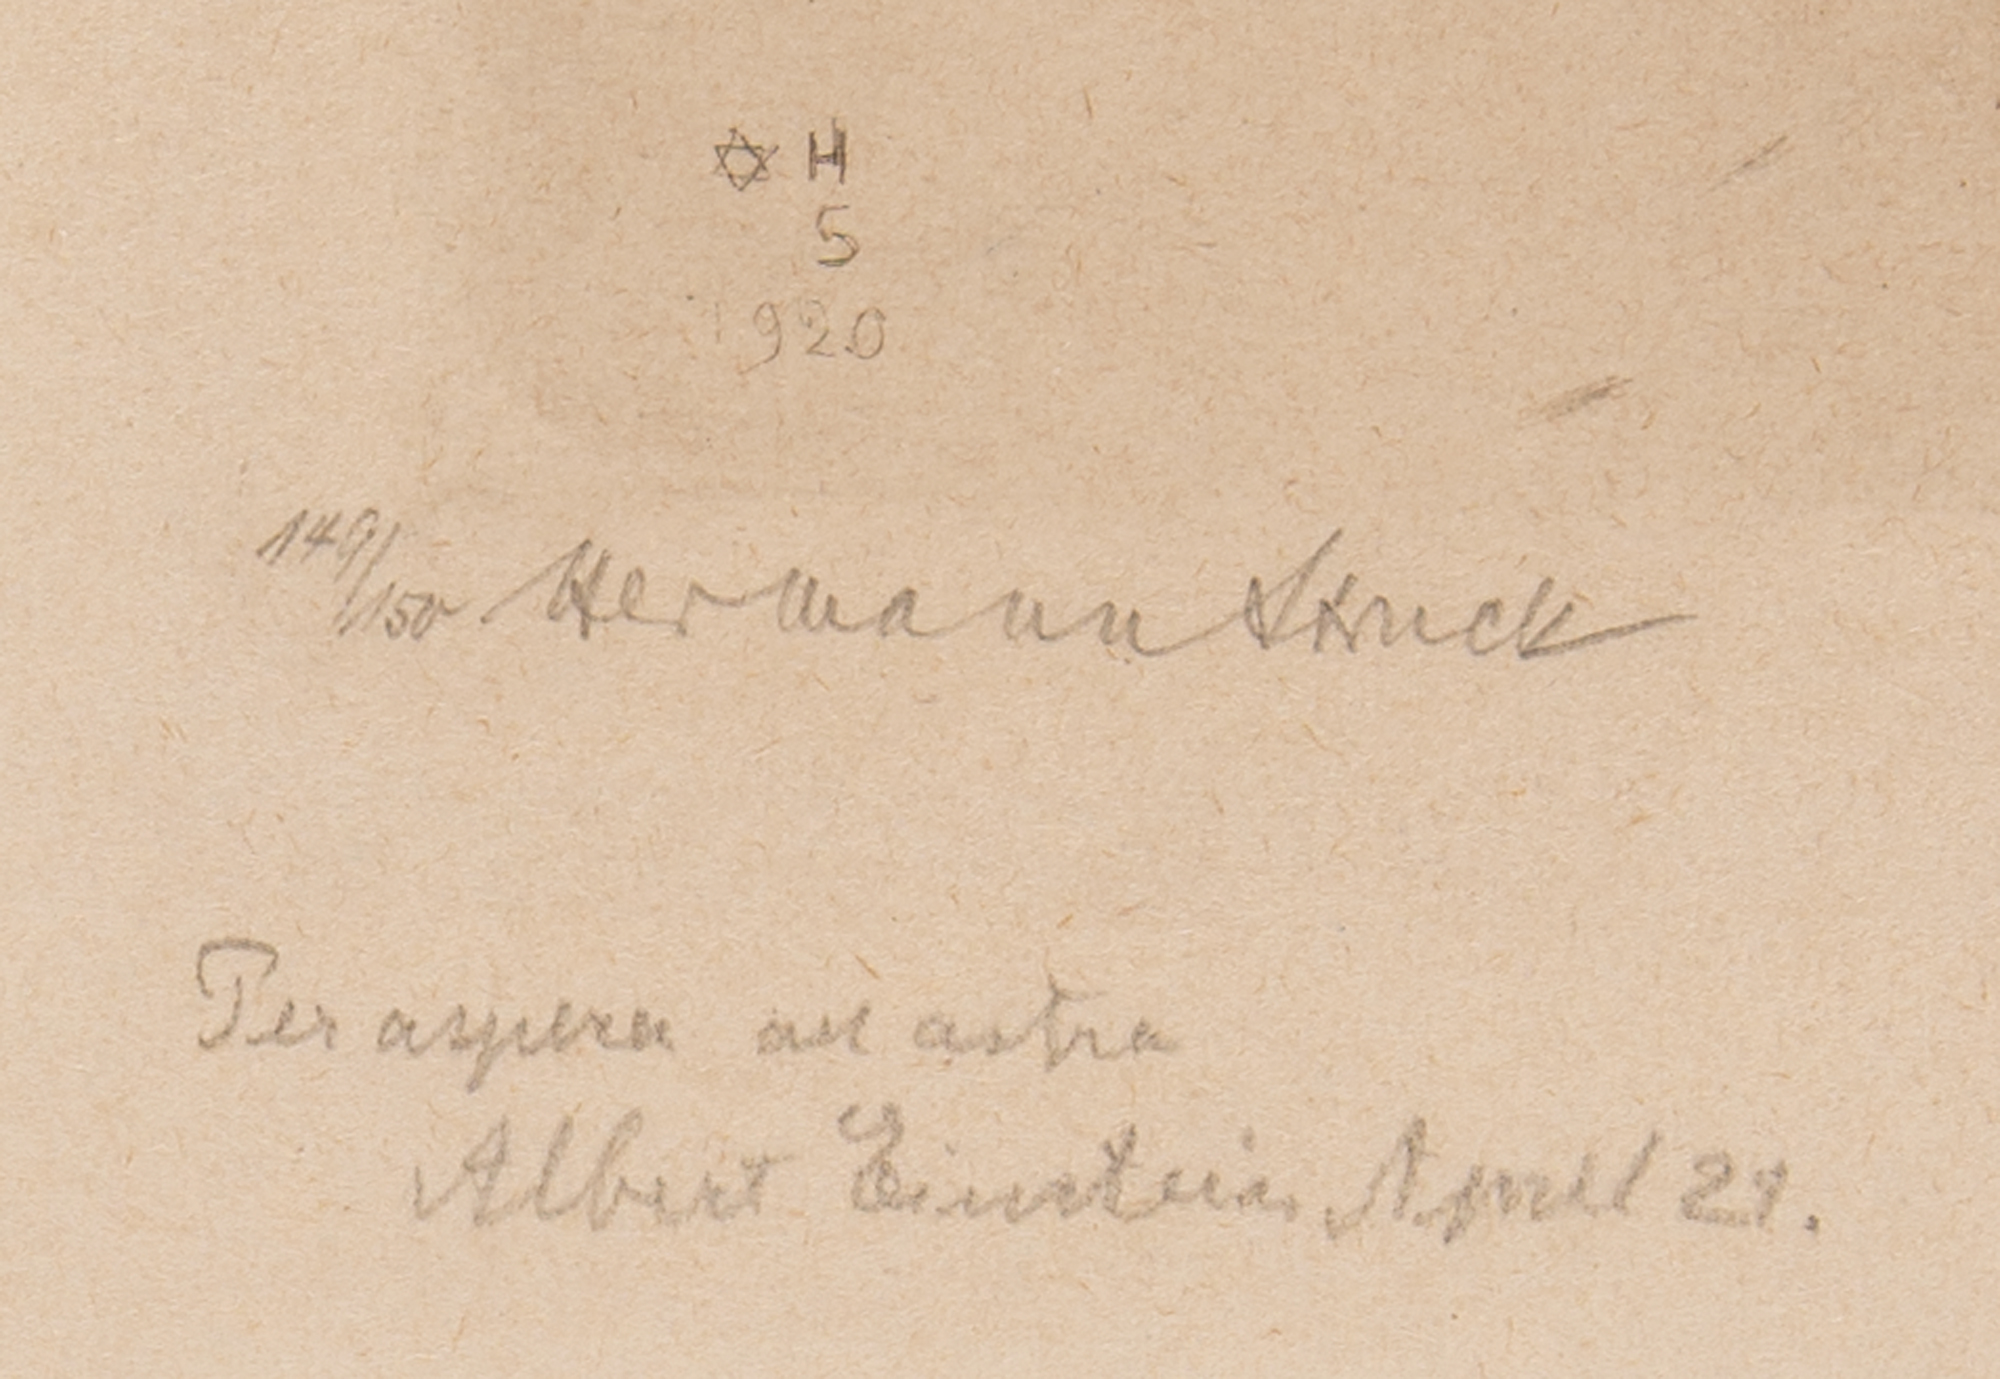 ✡ H
S
1920
149/150 Hermann Struck
Per aspera ad astra
Albert Einstein April 21.